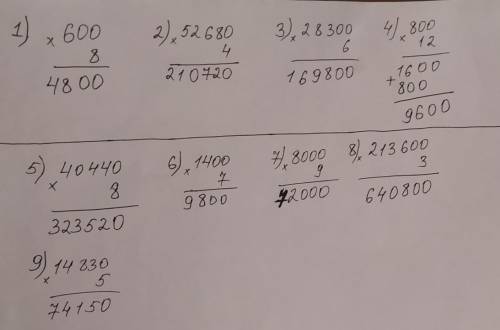 1) × 600
8
4800
2) × 52680
4
210720
3) × 28300
6
169800
4) × 800
12
1600
+ 800
9600
5) × 40440
8
323520
6) × 1400
7
9800
7) × 8000
9
72000
8) × 213600
3
640800
9) × 14830
5
74150